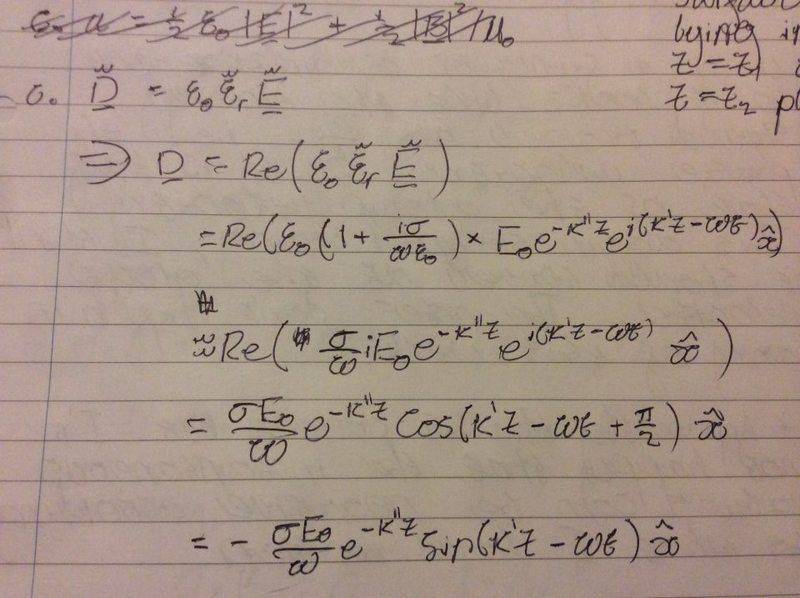 u = ½ ε₀ |E|² + ½ |B|²/μ₀
lying in
z = z₁
z = z₂ pl
c. D̃ = ε₀ ε̃ᵣ Ẽ
⇒ D = Re(ε₀ ε̃ᵣ Ẽ)
= Re(ε₀ (1 + iσ/ωε₀) × E₀ e^{-k''z} e^{i(k'z - ωt)} x̂)
≈ Re( σ/ω i E₀ e^{-k''z} e^{i(k'z - ωt)} x̂ )
= σE₀/ω e^{-k''z} cos(k'z - ωt + π/2) x̂
= - σE₀/ω e^{-k''z} sin(k'z - ωt) x̂